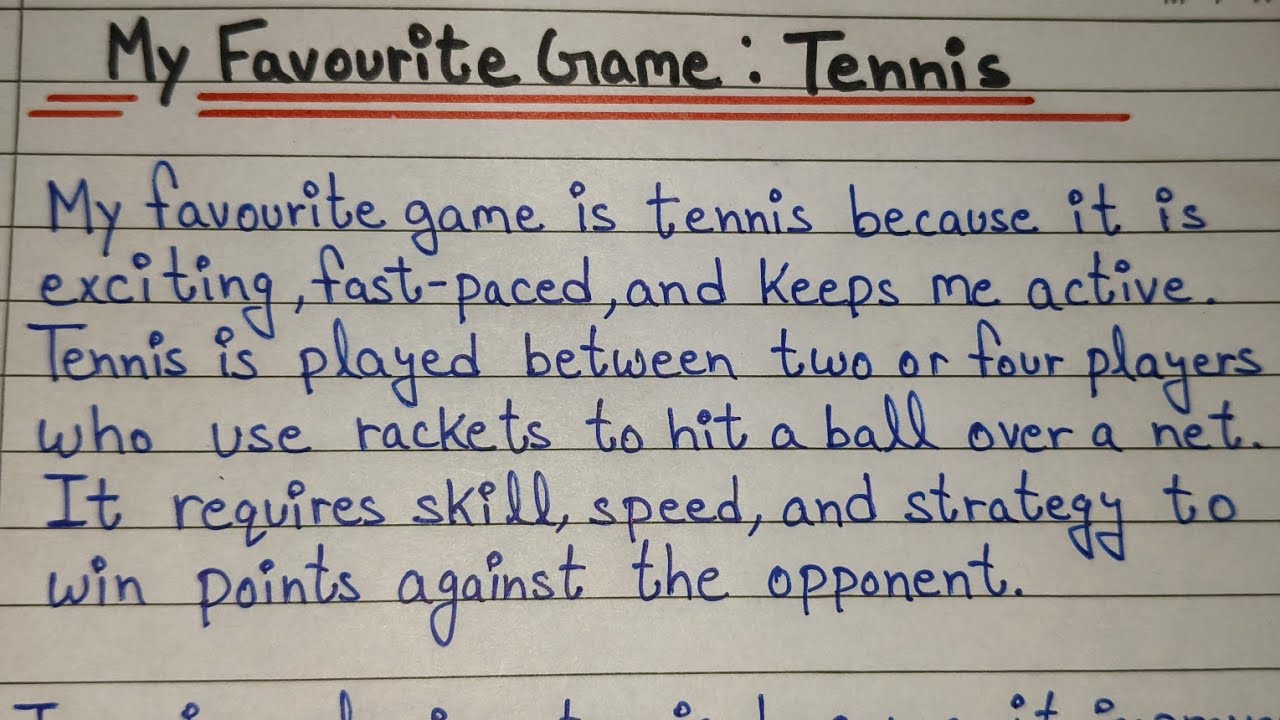 My Favourite Game : Tennis
My favourite game is tennis because it is
exciting, fast-paced, and keeps me active.
Tennis is played between two or four players
who use rackets to hit a ball over a net.
It requires skill, speed, and strategy to
win points against the opponent.